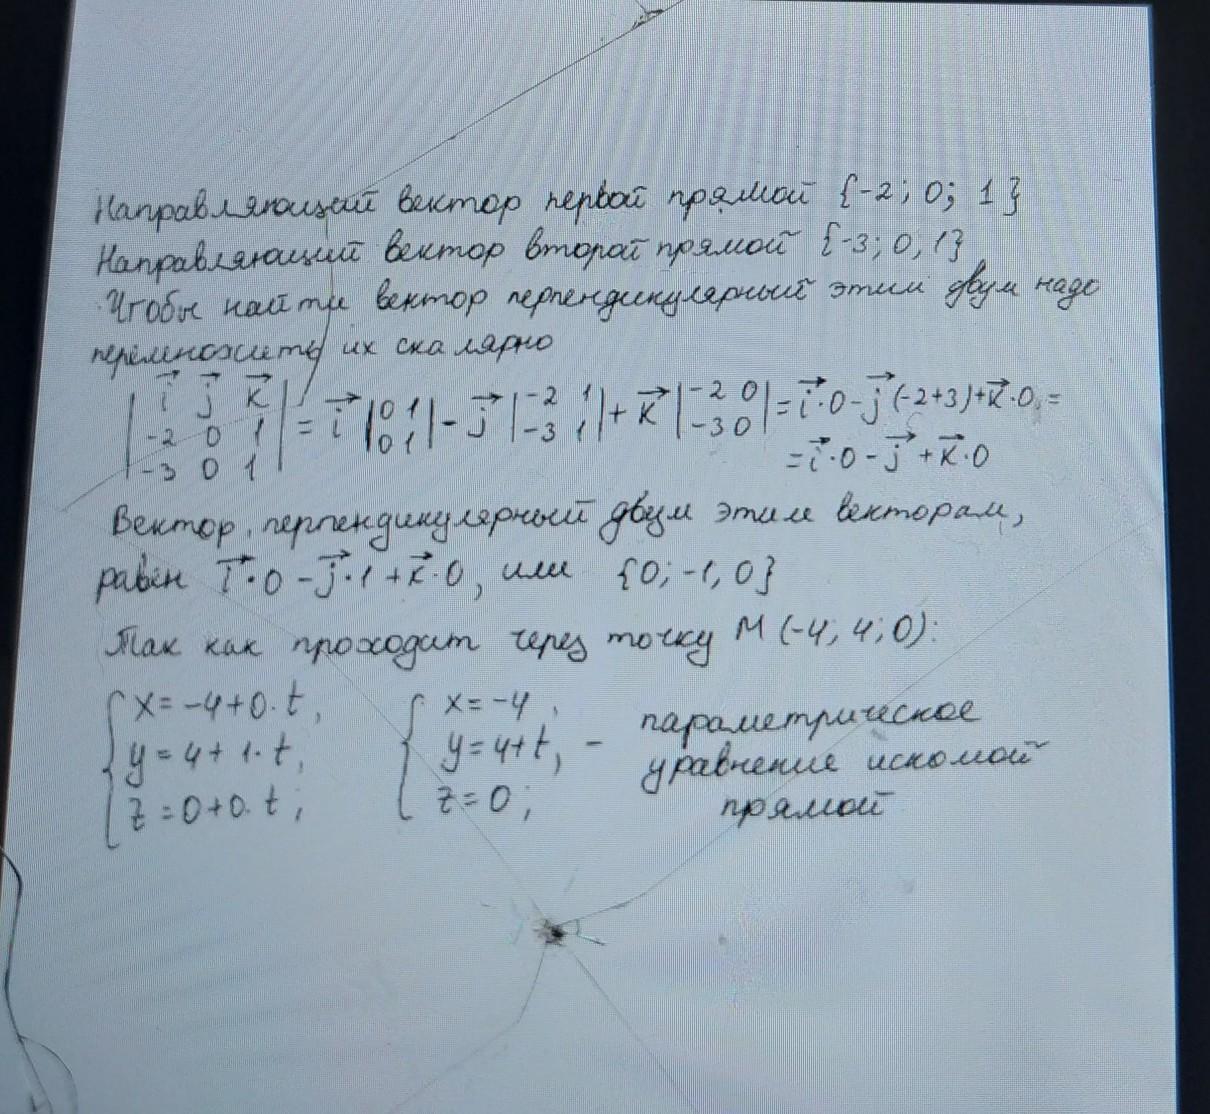 Направляющий вектор первой прямой {-2; 0; 1}
Направляющий вектор второй прямой {-3; 0, 1}
Чтобы найти вектор перпендикулярный этим двум надо
перемножить их скалярно
| i⃗ j⃗ k⃗ |
| -2 0 1 | = i⃗ |0 1| - j⃗ |-2 1| + k⃗ |-2 0| = i⃗·0 - j⃗(-2+3)+k⃗·0 =
| -3 0 1 | |0 1| |-3 1| |-3 0|
= i⃗·0 - j⃗ + k⃗·0
Вектор, перпендикулярный двум этим векторам,
равен i⃗·0 - j⃗·1 + k⃗·0, или {0; -1, 0}
Так как проходит через точку M (-4; 4; 0):
{ x = -4+0·t, { x = -4,
y = 4 + 1·t, y = 4+t, -
z = 0+0·t; z = 0;
параметрическое
уравнение искомой
прямой